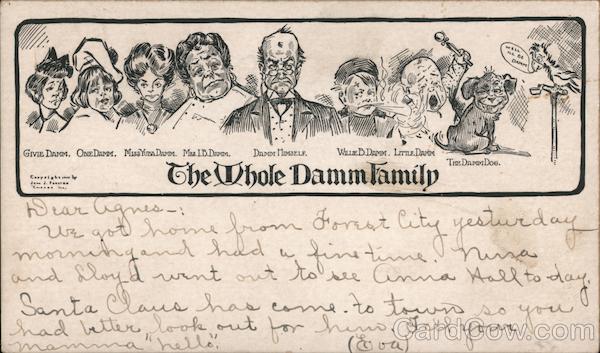 WELL I'LL BE DAMN!
GIVIE DAMM. ONE DAMM. MISS YUBA DAMM. MRS. I.B. DAMM. DAMM HIMSELF. WILLIE B. DAMM. LITTLE DAMM THE DAMM DOG.
The Whole Damm Family
Copyright by
Chicago Ill.
Dear Agnes-:
We got home from Forest City yesturday
morning and had a fine time. Nina
and Lloyd went out to see Anna Hall to-day.
Santa Claus has come to town so you
had better look out for him. Tell your
mamma "hello". (Eva)
CardCow.com